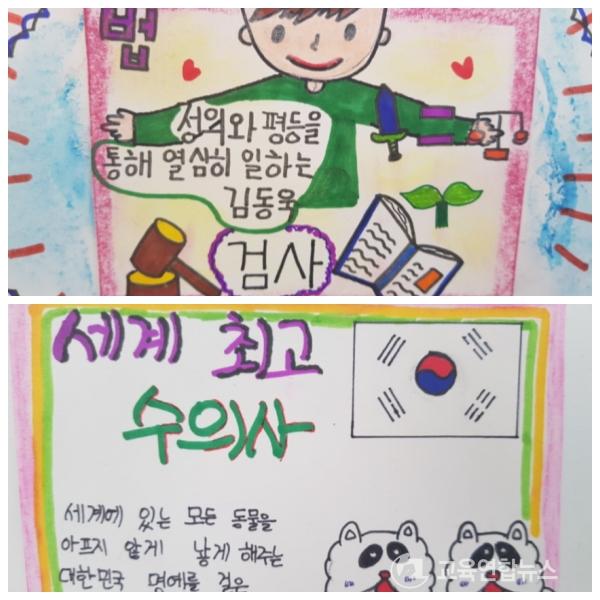 법
성의와 평등을
통해 열심히 일하는
김동욱
검사
세계 최고
수의사
세계에 있는 모든 동물을
아프지 않게 낳게 해주는
대한민국 명예를 걸은
교육연합뉴스